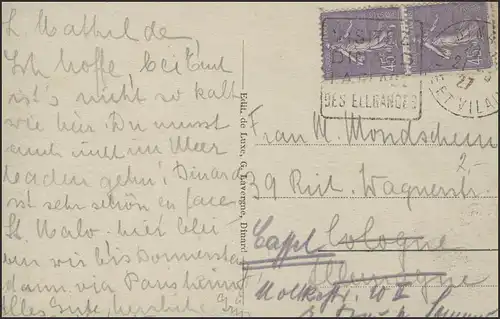 L. Mathilde
Ich hoffe, bei Euch
ist's nicht so kalt
wie hier. Du musst
auch mal im Meer
baden gehn! Dinard
ist sehr schön en face
St. Malo. hier blei
ben wir bis Donnerstag
dann via Paris heim
Alles Gute, herzliche
Edit. de Luxe, G. Lavergne, Dinard
45
45
DES ELEGANCES
27
ET VILAINE
Frau M. Mondschein
39 Rich. Wagnerstr.
2.-
Cologne
Cassel
Allemagne
Moltkestr. 10 I